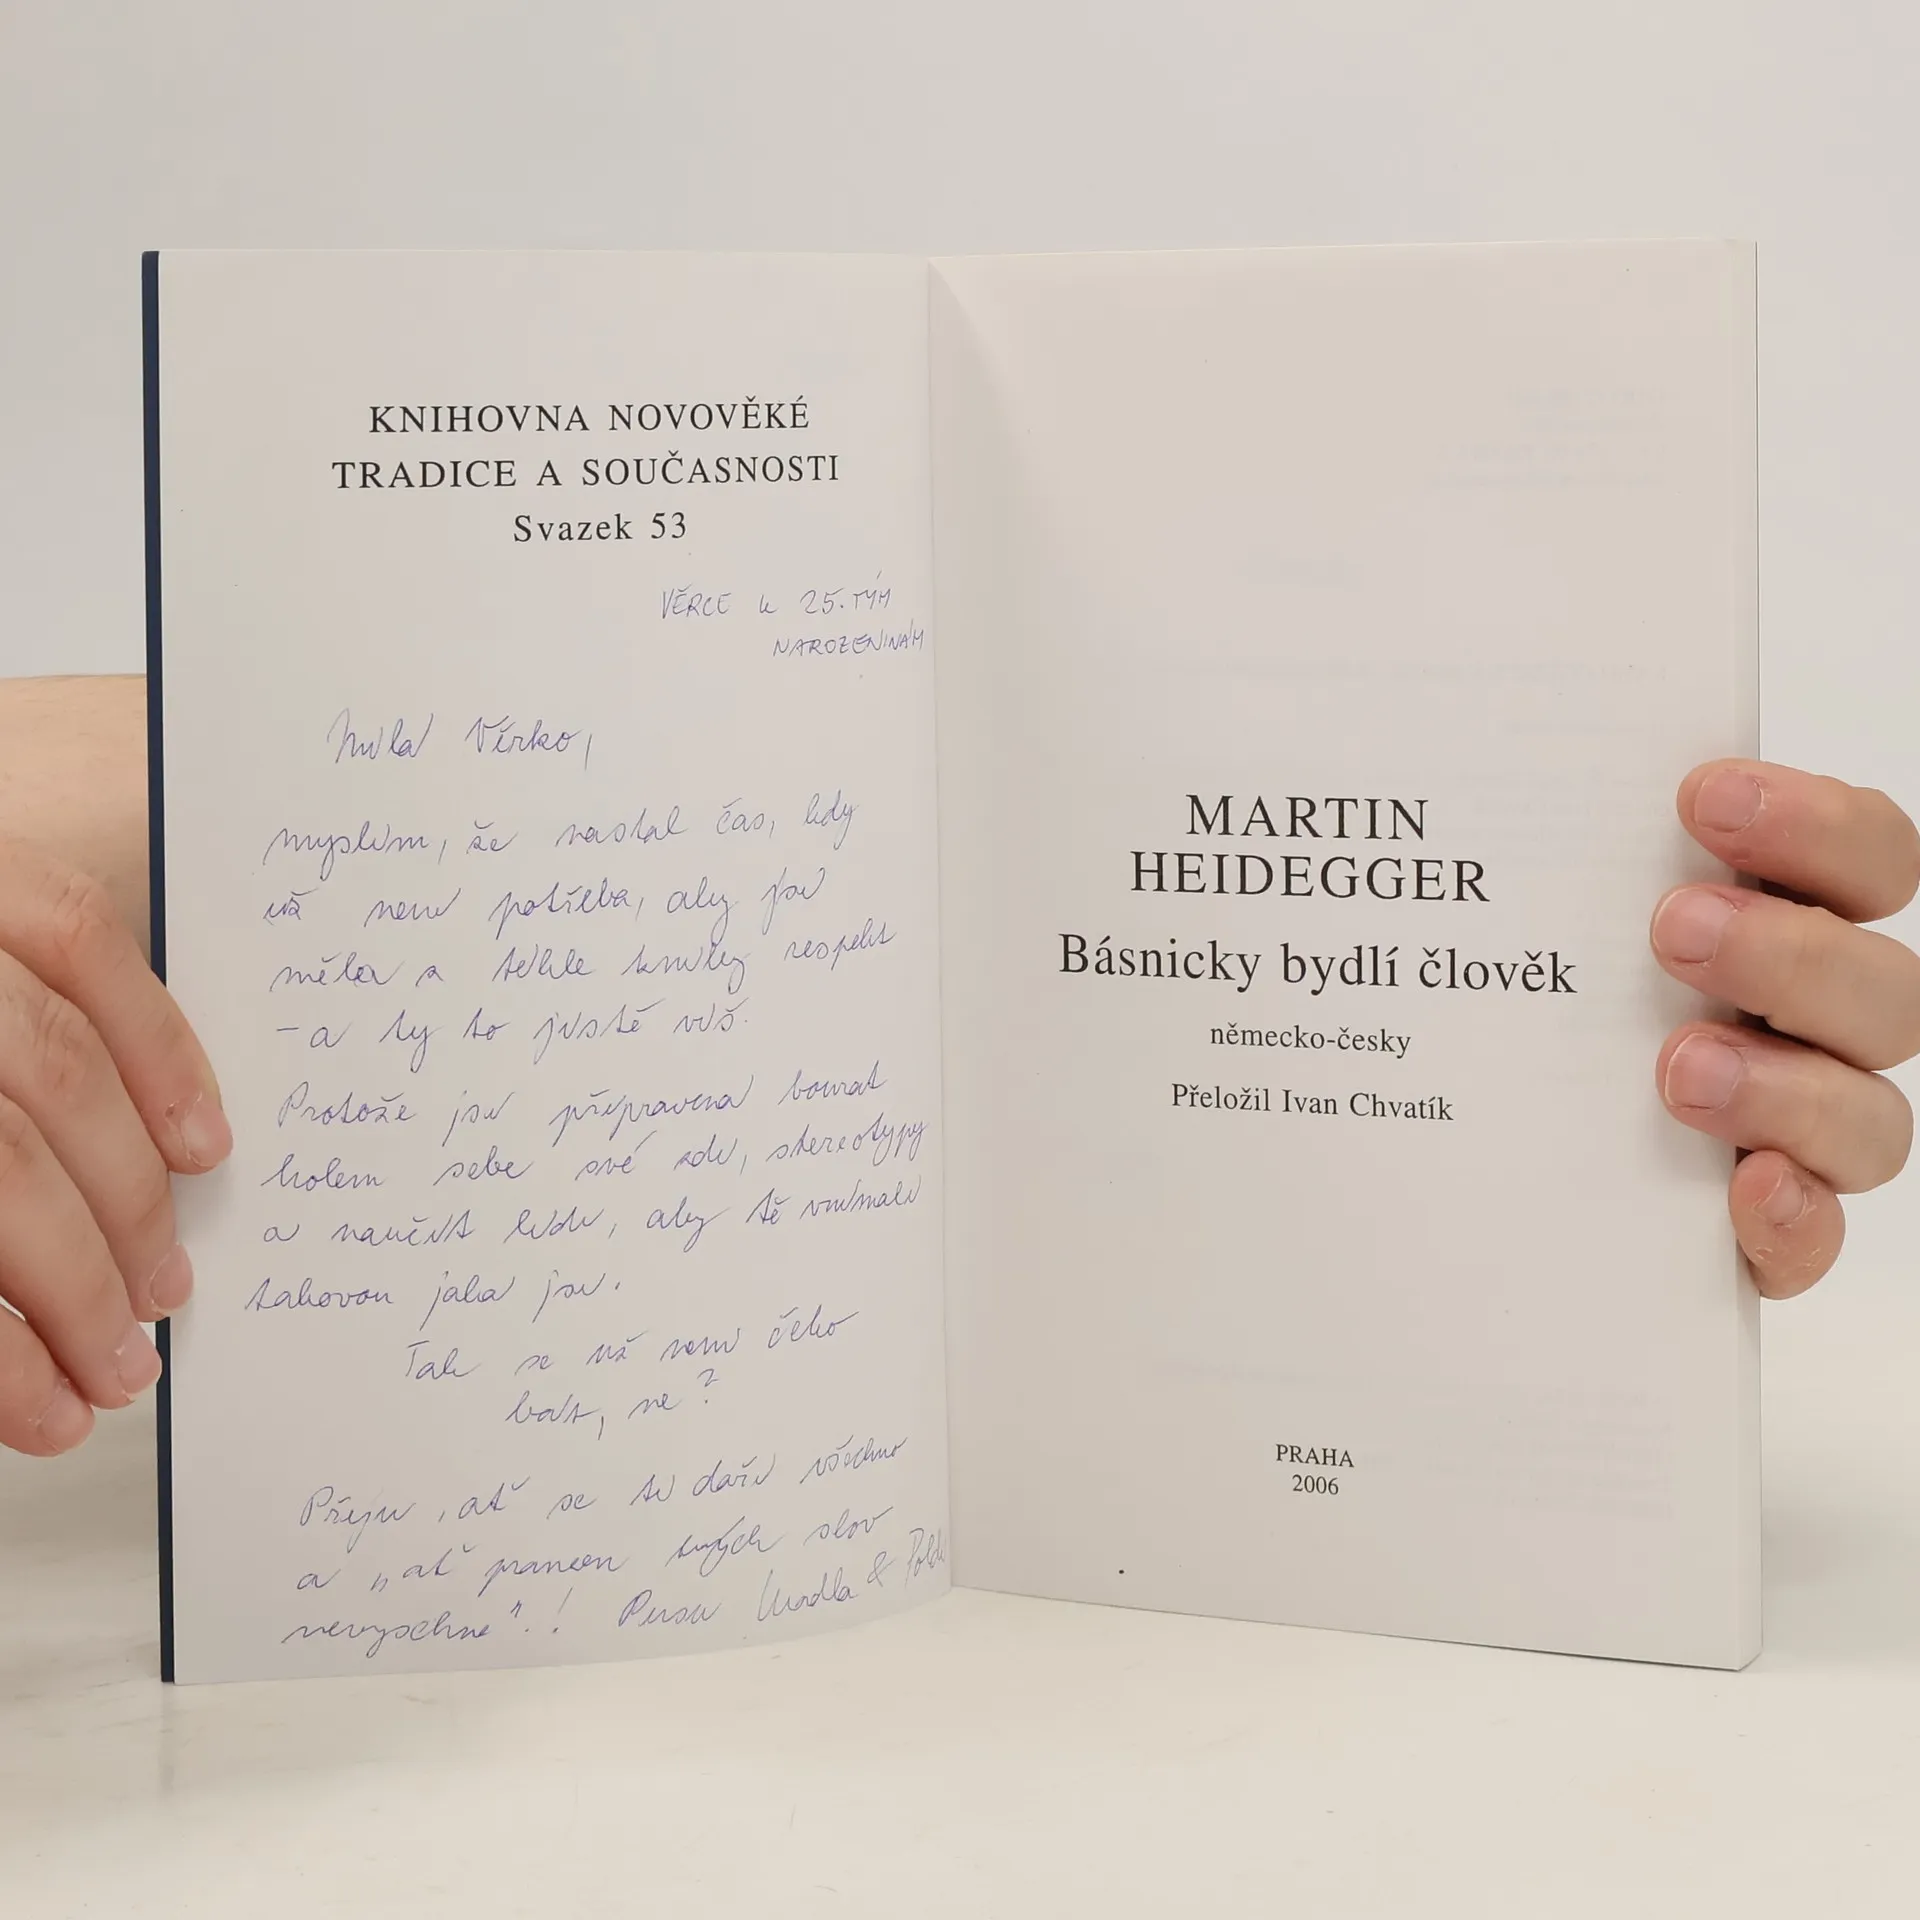 KNIHOVNA NOVOVĚKÉ
TRADICE A SOUČASNOSTI
Svazek 53
VĚRCE k 25.TÝM
NAROZENINÁM
Milá Věrko,
myslím, že nastal čas, kdy
už není potřeba, aby jsi
měla z téhle knihy respekt
– a ty to jistě víš.
Protože jsi připravena bourat
kolem sebe své zdi, stereotypy
a naučit lidi, aby tě vnímali
takovou jaká jsi.
Tak se už není čeho
bát, ne?
Přeju, ať se ti daří všechno
a „ať pramen tvých slov
nevyschne"!
MARTIN
HEIDEGGER
Básnicky bydlí člověk
německo-česky
Přeložil Ivan Chvatík
PRAHA
2006